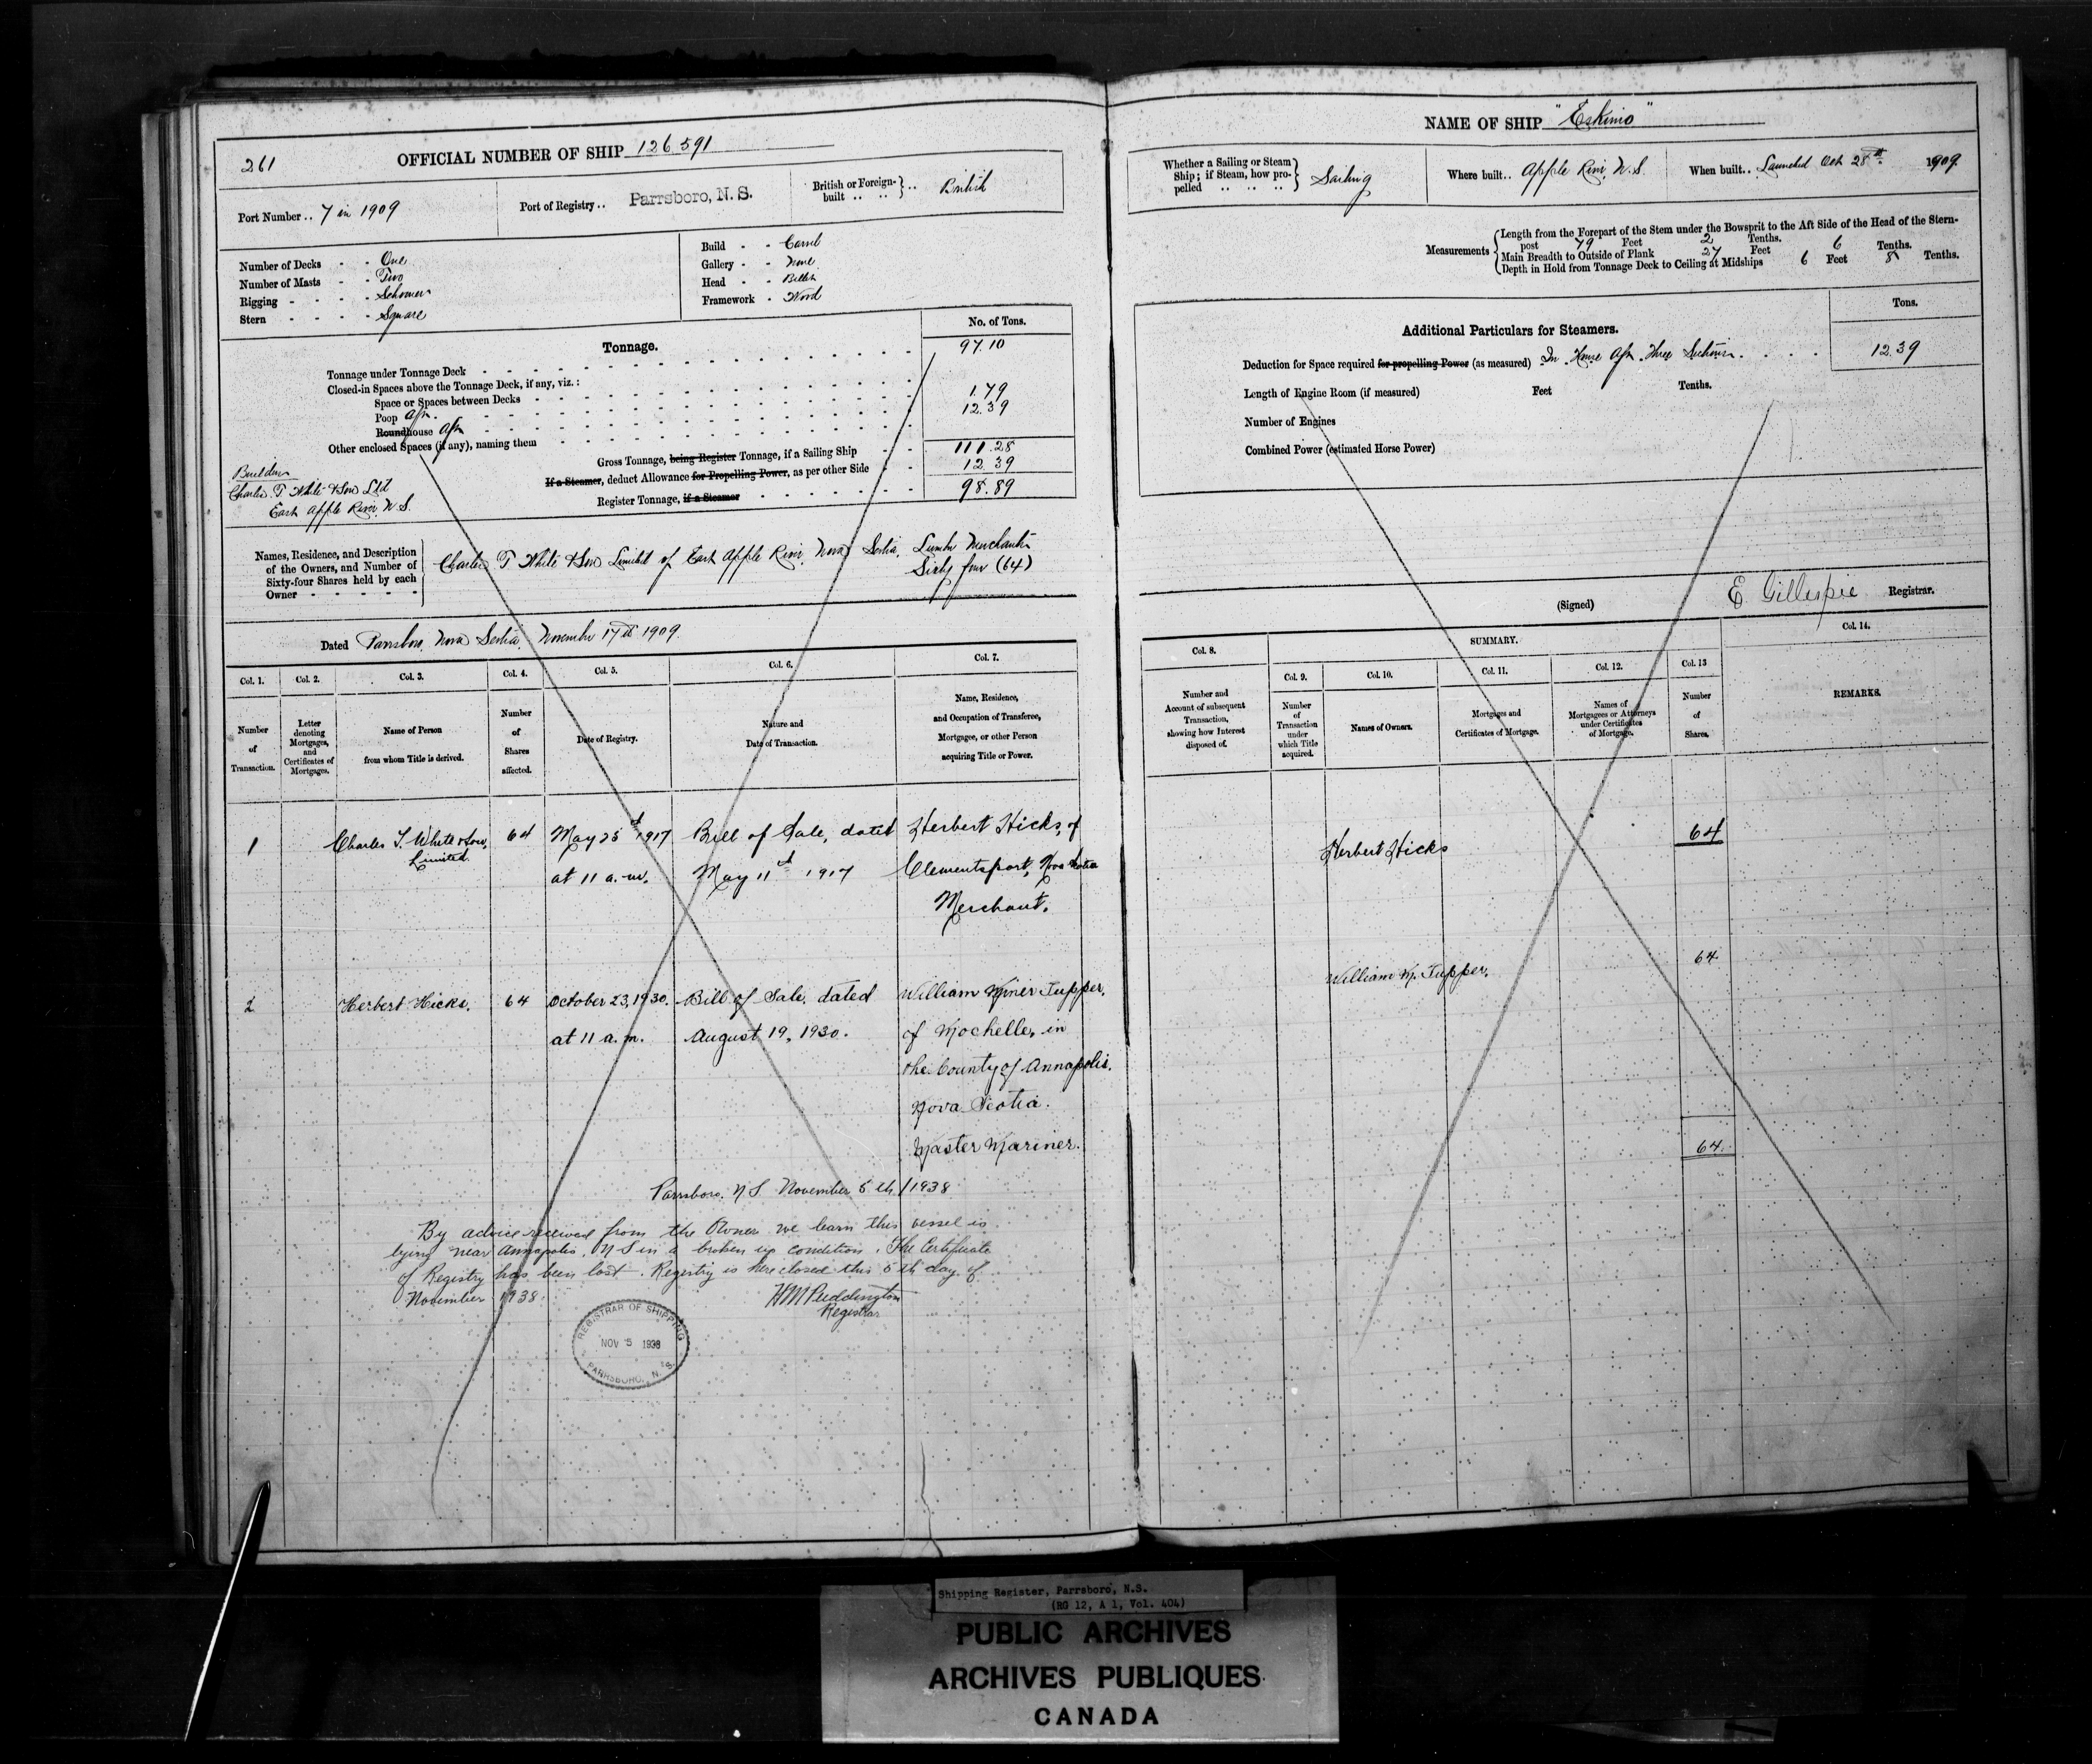 261
OFFICIAL NUMBER OF SHIP 126591
Port Number .. 7 in 1909
Port of Registry .. Parrsboro, N. S.
British or Foreign-built .. .. } .. British
Number of Decks - - One
Number of Masts - - Two
Rigging - - - - Schooner
Stern - - - - Square
Build - - Carvel
Gallery - - None
Head - - Billet
Framework - Wood
No. of Tons.
Tonnage.
Tonnage under Tonnage Deck 97.10
Closed-in Spaces above the Tonnage Deck, if any, viz.:
Space or Spaces between Decks
Poop Aft. 1.79
Roundhouse Aft 12.39
Other enclosed Spaces (if any), naming them
Gross Tonnage, being Register Tonnage, if a Sailing Ship 111.28
If a Steamer, deduct Allowance for Propelling Power, as per other Side 12.39
Register Tonnage, if a Steamer 98.89
Builders
Charles T White & Son Ltd
East Apple River N.S.
Names, Residence, and Description
of the Owners, and Number of
Sixty-four Shares held by each
Owner - - - - -
Charles T White & Son Limited of East Apple River, Nova Scotia, Lumber Merchants
Sixty four (64)
Dated Parrsboro, Nova Scotia, November 17th 1909.
Col. 1. Col. 2. Col. 3. Col. 4. Col. 5. Col. 6. Col. 7.
Number of Transaction.
Letter denoting Mortgages, and Certificates of Mortgages.
Name of Person from whom Title is derived.
Number of Shares affected.
Date of Registry.
Nature and Date of Transaction.
Name, Residence, and Occupation of Transferee, Mortgagee, or other Person acquiring Title or Power.
1 Charles T. White & Son, 64 May 25th 1917 Bill of Sale, dated Herbert Hicks, of
Limited. at 11 a.m. May 11th 1917 Clementsport, Nova Scotia
Merchant.
2 Herbert Hicks. 64 October 23, 1930. Bill of Sale, dated William Miner Tupper,
at 11 a.m. August 19, 1930. of Mochelle, in
the County of Annapolis.
Nova Scotia.
Master Mariner.
Parrsboro. N S November 5th / 1938
By advice received from the Owner we learn this vessel is
lying near Annapolis, N S in a broken up condition. The Certificate
of Registry has been lost. Registry is here closed this 5th day of
November 1938.
H M Puddington
Registrar
REGISTRAR OF SHIPPING
NOV 5 1938
PARRSBORO, N. S.
NAME OF SHIP "Eskimo"
Whether a Sailing or Steam
Ship; if Steam, how pro-
pelled .. .. .. } Sailing
Where built.. Apple River, N.S.
When built.. Launched Oct 28th 1909.
Measurements
Length from the Forepart of the Stem under the Bowsprit to the Aft Side of the Head of the Stern-
post 79 Feet 2 Tenths.
Main Breadth to Outside of Plank 27 Feet 6 Tenths.
Depth in Hold from Tonnage Deck to Ceiling at Midships 6 Feet 8 Tenths.
Tons.
Additional Particulars for Steamers.
Deduction for Space required for propelling Power (as measured) In House Aft Three Sections. 12.39
Length of Engine Room (if measured) Feet Tenths.
Number of Engines
Combined Power (estimated Horse Power)
(Signed) E Gillespie Registrar.
Col. 8. SUMMARY. Col. 14.
Col. 9. Col. 10. Col. 11. Col. 12. Col. 13
Number and Account of subsequent Transaction, showing how Interest disposed of.
Number of Transaction under which Title acquired.
Names of Owners.
Mortgages and Certificates of Mortgage.
Names of Mortgagees or Attorneys under Certificates of Mortgage.
Number of Shares.
REMARKS.
Herbert Hicks 64
William M. Tupper. 64
64.
Shipping Register, Parrsboro, N.S.
(RG 12, A 1, Vol. 404)
PUBLIC ARCHIVES
ARCHIVES PUBLIQUES
CANADA